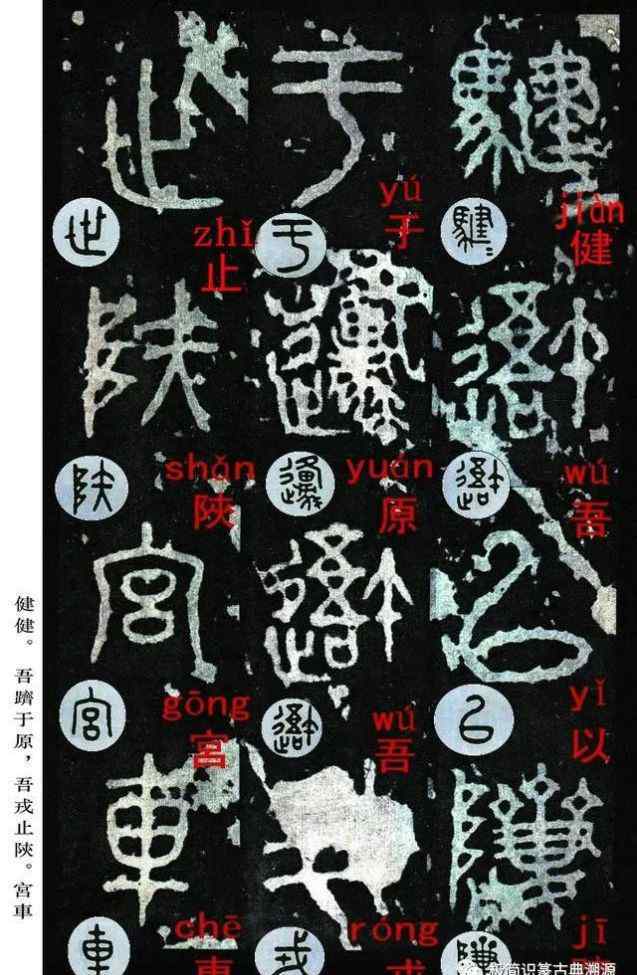 jiàn
健
wú
吾
yǐ
以
jī
yú
于
yuán
原
wú
吾
róng
戎
zhǐ
止
shǎn
陝
gōng
宮
chē
車
健健。吾躋于原，吾戎止陝。宮車
识篆古典溯源